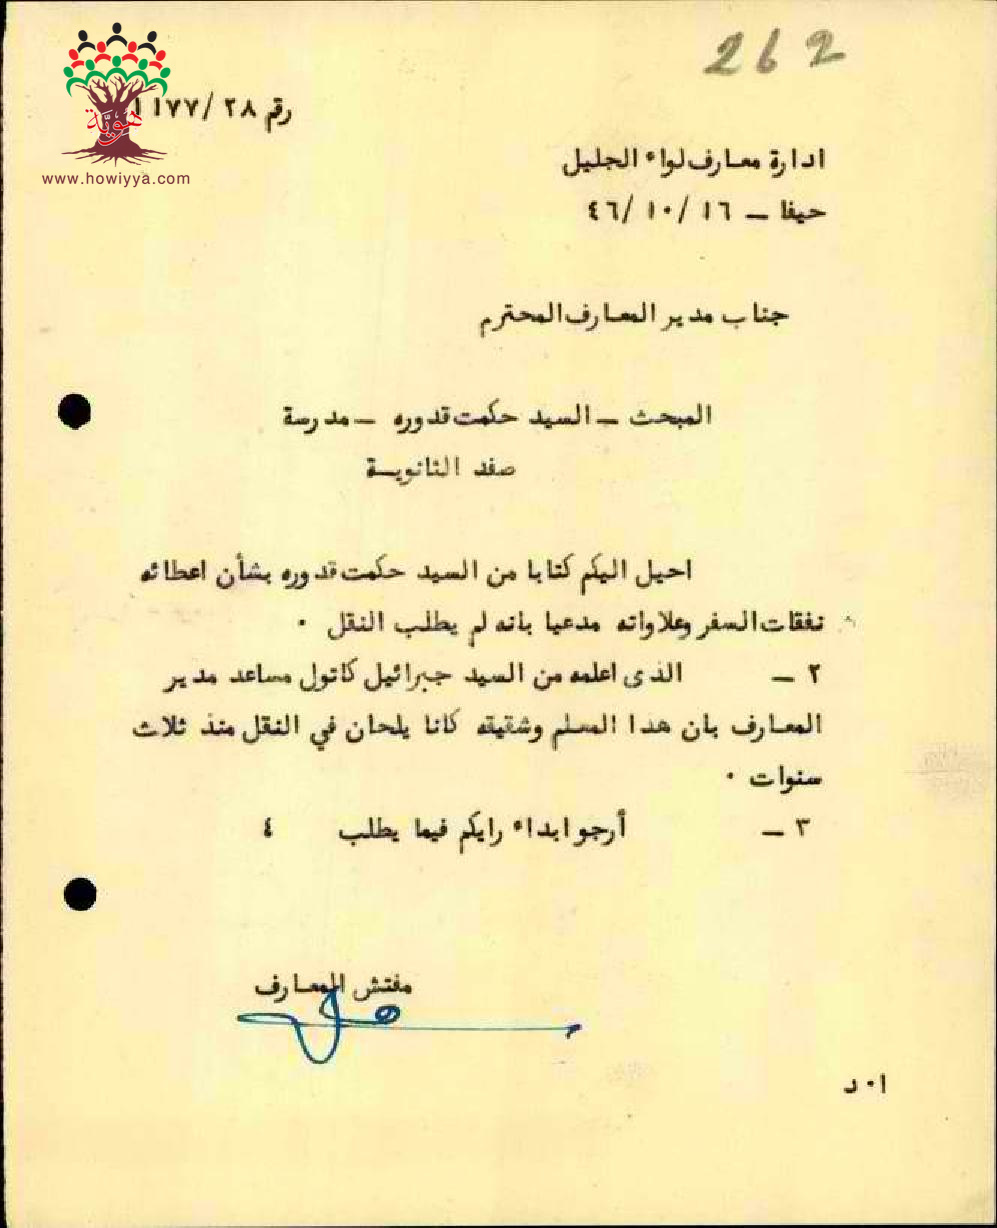 262
هوية
www.howiyya.com
رقم ٢٨ /١١٧٧
ادارة معارف لواء الجليل
حيفا — ١٦ /١٠ /٤٦
جناب مدير المعارف المحترم
المبحث — السيد حكمت قدوره — مدرسة
صفد الثانوية
احيل اليكم كتابا من السيد حكمت قدوره بشأن اعطائه
نفقات السفر وعلاواته مدعيا بانه لم يطلب النقل ٠
٢ — الذى اعلمه من السيد جبرائيل كاتول مساعد مدير
المعارف بان هدا المسلم وشقيقه كانا يلحان في النقل منذ ثلاث
سنوات ٠
٣ — أرجو ابداء رايكم فيما يطلب ٤
مفتش المعارف
ا ٠ د